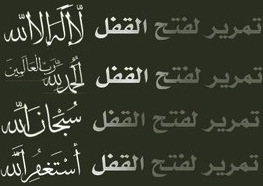 تمرير لفتح القفل لا إله إلا الله
تمرير لفتح القفل الحمد لله رب العالمين
تمرير لفتح القفل سبحان الله
تمرير لفتح القفل أستغفر الله